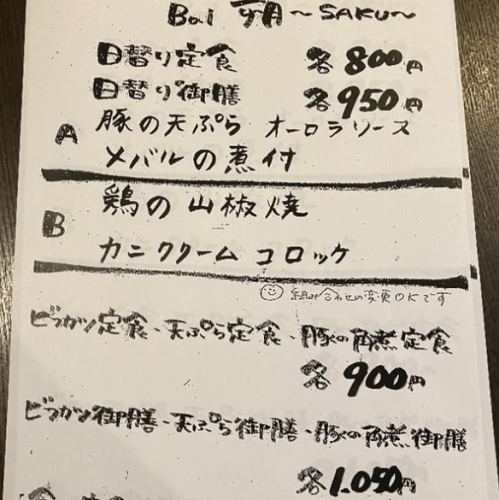 Bal 朔〜SAKU〜
日替り定食 各800円
日替り御膳 各950円
A 豚の天ぷら オーロラソース
メバルの煮付
B 鶏の山椒焼
カニクリームコロッケ
組み合わせの変更OKです
ビフカツ定食・天ぷら定食・豚の角煮定食
各900円
ビフカツ御膳・天ぷら御膳・豚の角煮御膳
各1,050円